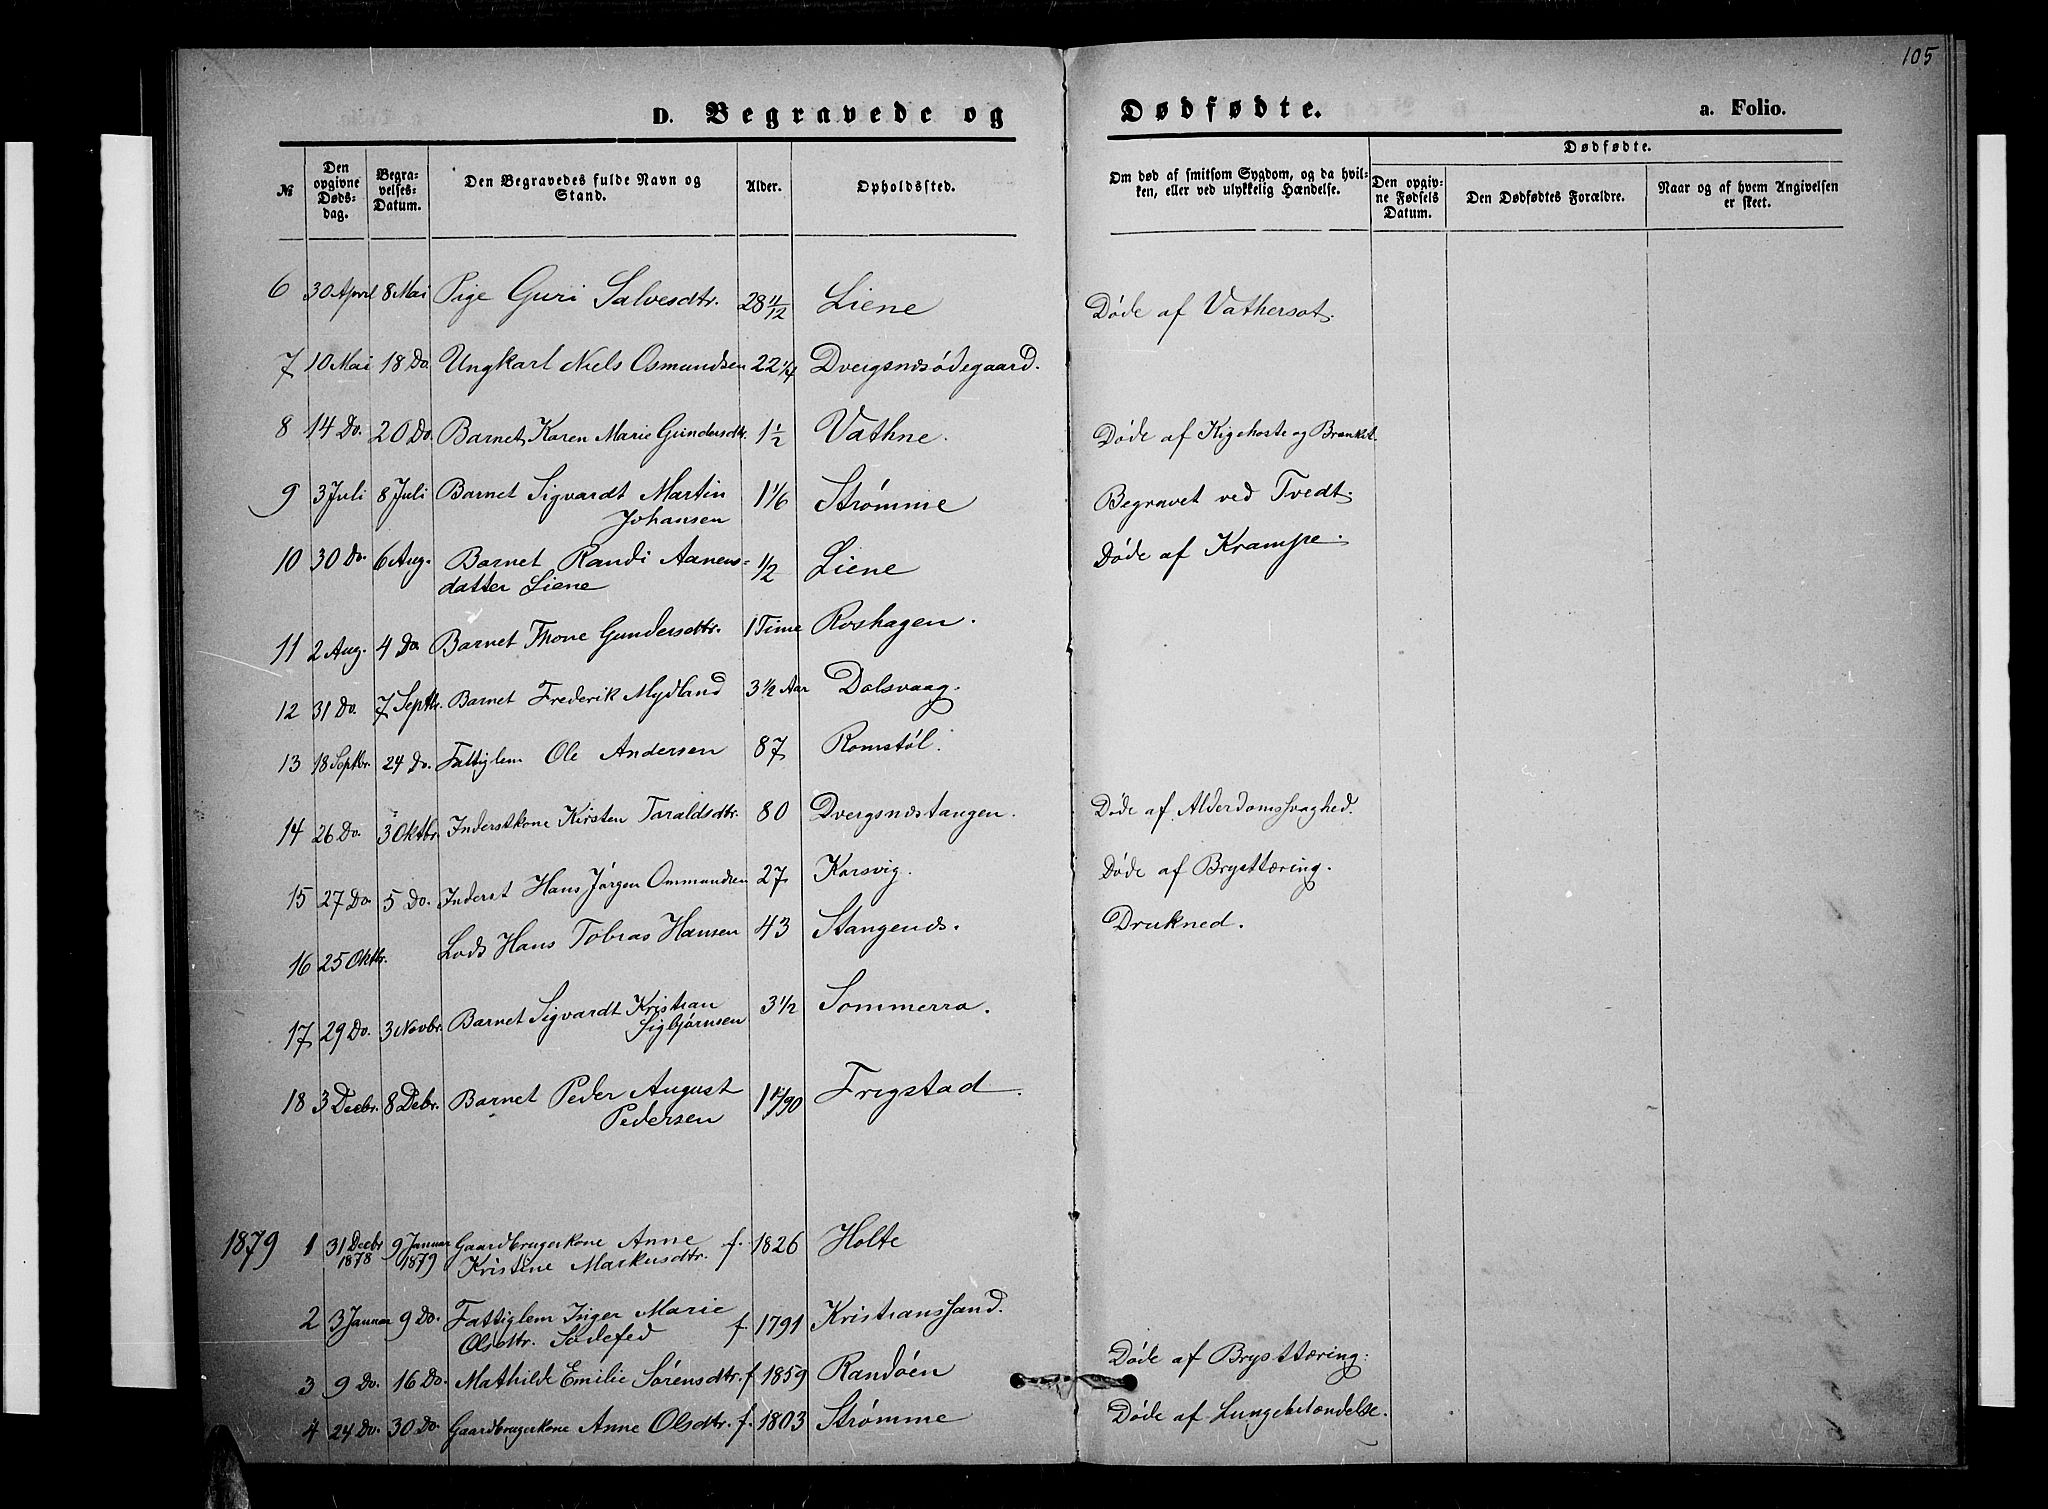 105
D. Begravede og Dødfødte. a. Folio.
№ Den opgivne Dødsdag. Begravelses-Datum. Den Begravedes fulde Navn og Stand. Alder. Opholdssted. Om død af smitsom Sygdom, og da hvilken, eller ved ulykkelig Hændelse. Dødfødte. Den opgivne Fødsels Datum. Den Dødfødtes Forældre. Naar og af hvem Angivelsen er skeet.
6 30 April 8 Mai Pige Guri Salvesdtr. 28 11/12 Liene Døde af Vathersot.
7 10 Mai 18 Do. Ungkarl Niels Osmundsen 22 1/4 Dvergsnæsødegaard.
8 14 Do. 20 Do. Barnet Karen Marie Gundersdtr. 1 1/2 Vathne. Døde af Kigehoste og Bronkit.
9 3 Juli 8 Juli Barnet Sigvardt Martin 1 1/6 Strømme Begravet ved Tvedt.
Johansen
10 30 Do. 6 Aug. Barnet Randi Aanens- 1/2 Liene Døde af Krampe.
datter Liene
11 2 Aug. 4 Do. Barnet Thone Gundersdtr. 1 Time Roshagen.
12 31 Do. 7 Septbr. Barnet Frederik Mydland 3 1/2 Aar Dolsvaag.
13 18 Septbr. 24 Do. Fattiglem Ole Andersen 87 Romstøl.
14 26 Do. 3 Oktbr. Inderstkone Kirsten Taraldsdtr. 80 Dvergsnæstangen. Døde af Alderdomssvaghed.
15 27 Do. 5 Do. Inderst Hans Jørgen Ommundsen 27 Korsvig. Døde af Brysttæring.
16 25 Oktbr. Lods Hans Tobias Hansen 43 Stangenæs. Druknet.
17 29 Do. 3 Novbr. Barnet Sigvardt Kristian 3 1/2 Sommerro.
Sigbjørnsen
18 3 Decbr. 8 Debr. Barnet Peder August 1 11/90 Frigstad.
Pedersen
1879 1 31 Decbr 1878 9 Januar 1879 Gaardbrugerkone Anne f. 1826 Holte
Kristine Markusdtr.
2 3 Januar 9 Do. Fattiglem Inger Marie f. 1791 Kristianssand.
Olsdtr.
3 9 Do. 16 Do. Mathilde Emilie Sørensdtr. f 1859 Randøen Døde af Brysttæring.
4 24 Do. 30 Do. Gaardbrugerkone Anne Olsdtr. f. 1803 Strømme Døde af Lungebetændelse.